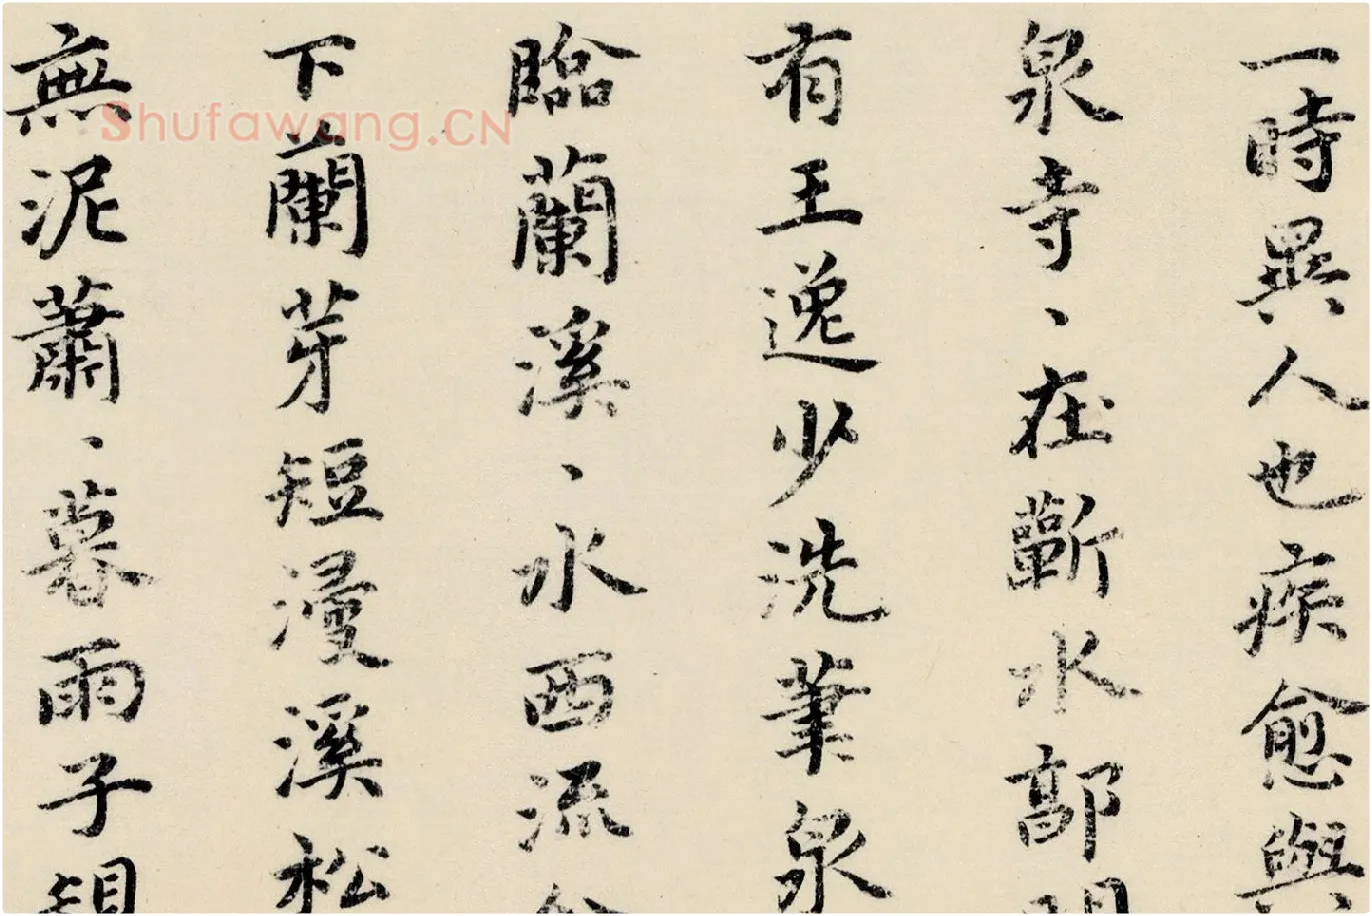 一時異人也疾愈與
泉寺、在蘄水郭
有王逸少洗筆泉
臨蘭溪、水西流
下蘭芽短漫溪松
無泥蕭、暮雨子規
Shufawang.CN